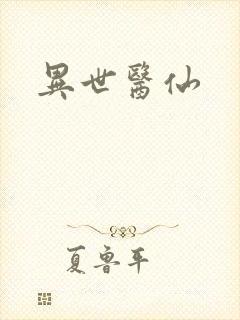 異世醫仙
夏魯平